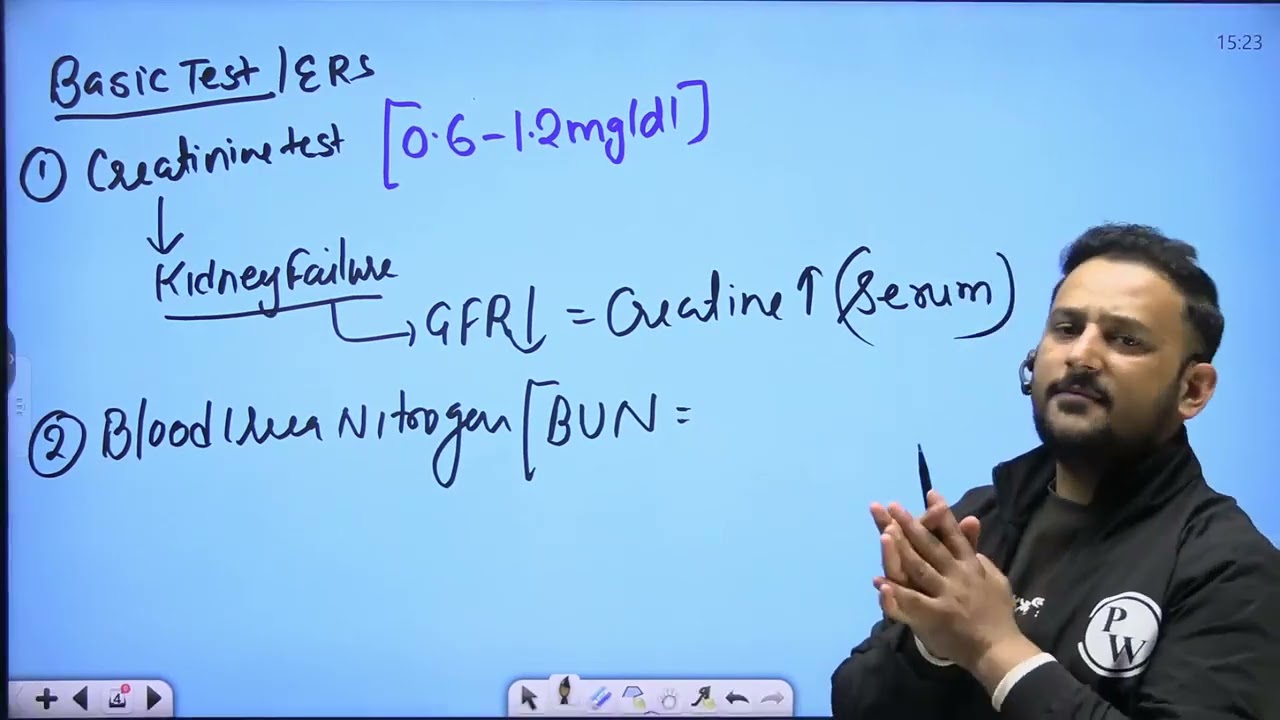 15:23
Basic Test | ERS
① Creatinine test [0.6-1.2mg/dl]
↓
Kidney Failure
→ GFR↓ = Creatine ↑ (Serum)
② Blood Urea Nitrogen [BUN =
PW
4